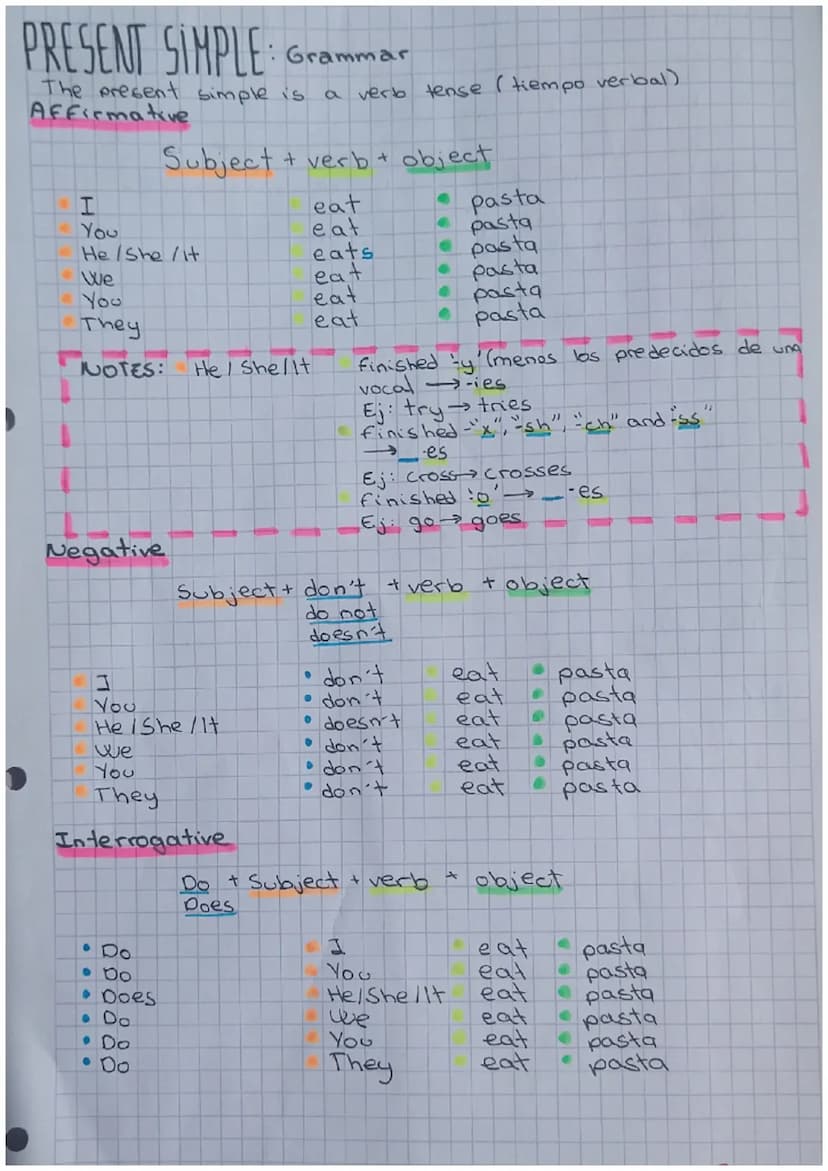 PRESENT SIMPLE: Grammar
The present simple is a verb tense (tiempo verbal)
Affirmative
Subject + verb + object
I eat pasta
You eat pasta
He/She/It eats pasta
We eat pasta
You eat pasta
They eat pasta
NOTES: He/She/It finished '-y' (menos los predecidos de una
vocal → -ies
Ej: try → tries
finished -"x", "-sh", "-ch" and "-ss"
→ _-es
Ej: cross → crosses
finished '-o' → _-es
Ej: go → goes
Negative
Subject + don't + verb + object
do not
doesn't
I don't eat pasta
You don't eat pasta
He/She/It doesn't eat pasta
We don't eat pasta
You don't eat pasta
They don't eat pasta
Interrogative
Do + Subject + verb + object
Does
Do I eat pasta
Do You eat pasta
Does He/She/It eat pasta
Do We eat pasta
Do You eat pasta
Do They eat pasta